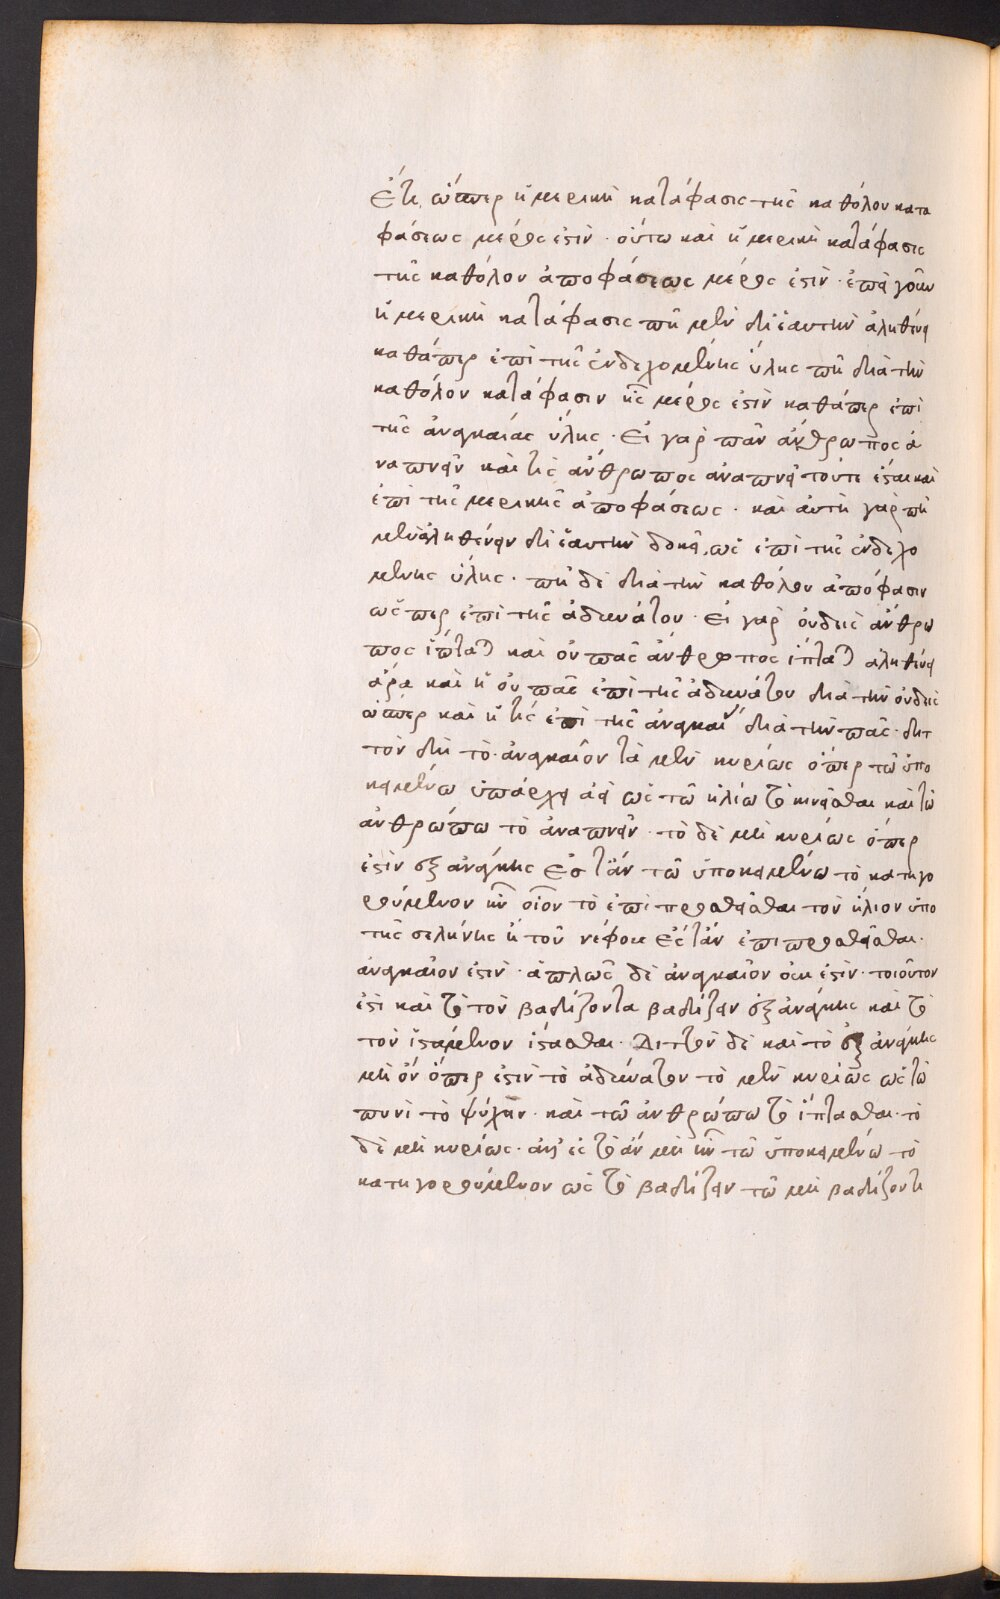 Ἔτι ὥσπερ ἡ μερικὴ κατάφασις τῆς καθόλου κατα
φάσεως μέρος ἐστίν· οὕτω καὶ ἡ μερικὴ κατάφασις
τῆς καθόλου ἀποφάσεως μέρος ἐστίν· ἐπεὶ γοῦν
ἡ μερικὴ κατάφασις πῆ μὲν δι' ἑαυτὴν ἀληθεύει
καθάπερ ἐπὶ τῆς ἐνδεχομένης ὕλης πῆ διὰ τὴν
καθόλου κατάφασιν ἧς μέρος ἐστὶν καθάπερ ἐπὶ
τῆς ἀναγκαίας ὕλης· Εἰ γὰρ πᾶν ἄνθρωπος ἀ
ναπνεῖν καὶ τὶς ἄνθρωπος ἀναπνεῖ τοῦτο ἔσται καὶ
ἐπὶ τῆς μερικῆς ἀποφάσεως· καὶ αὐτὴ γὰρ πῆ
μὲν ἀληθεύειν δι' ἑαυτὴν δοκεῖ, ὡς ἐπὶ τῆς ἐνδεχο
μένης ὕλης· πῆ δὲ διὰ τὴν καθόλου ἀπόφασιν
ὥσπερ ἐπὶ τῆς ἀδυνάτου· Εἰ γὰρ οὐδεὶς ἄνθρω
πος ἵπταται καὶ οὐ πᾶς ἄνθρωπος ἵπταται ἀληθεύει
ἄρα καὶ ἡ οὐ πᾶς ἐπὶ τῆς ἀδυνάτου διὰ τὴν οὐδεὶς
ὥσπερ καὶ ἡ τὶς ἐπὶ τῆς ἀναγκαί διὰ τὴν πᾶς· διτ
τὸν δὴ τὸ ἀναγκαῖον τὰ μὲν κυρίως ὅπερ τῶ ὑπο
κειμένω ὑπάρχει ἀεὶ ὡς τῶ ἡλίω τὸ κινεῖσθαι καὶ τῶ
ἀνθρώπω τὸ ἀναπνεῖν· τὸ δὲ μὴ κυρίως ὅπερ
ἐστὶν ἐξ ἀνάγκης ἔστ' ἂν τῶ ὑποκειμένω τὸ κατηγο
ρούμενον ἦν οἷον τὸ ἐπιπροσθεῖσθαι τὸν ἥλιον ὑπὸ
τῆς σελήνης ἢ τοῦ νέφους ἔστ' ἂν ἐπιπροσθεῖσθαι·
ἀναγκαῖον ἐστὶν· ἁπλῶς δὲ ἀναγκαῖον οὐκ ἐστὶν· τοιοῦτον
ἐστὶ καὶ τὸ τὸν βαδίζοντα βαδίζειν ἐξ ἀνάγκης καὶ τὸ
τὸν ἱστάμενον ἵστασθαι· Διττὸν δὲ καὶ τὸ ἐξ ἀνάγκης
μὴ ὂν ὅπερ ἐστὶν τὸ ἀδύνατον τὸ μὲν κυρίως ὡς τῶ
πυρὶ τὸ ψύχειν· καὶ τῶ ἀνθρώπω τὸ ἵπτασθαι· τὸ
δὲ μὴ κυρίως· τῶ ὑποκειμένω τὸ
κατηγορούμενον ὡς τὸ βαδίζειν τῶ μὴ βαδίζοντι